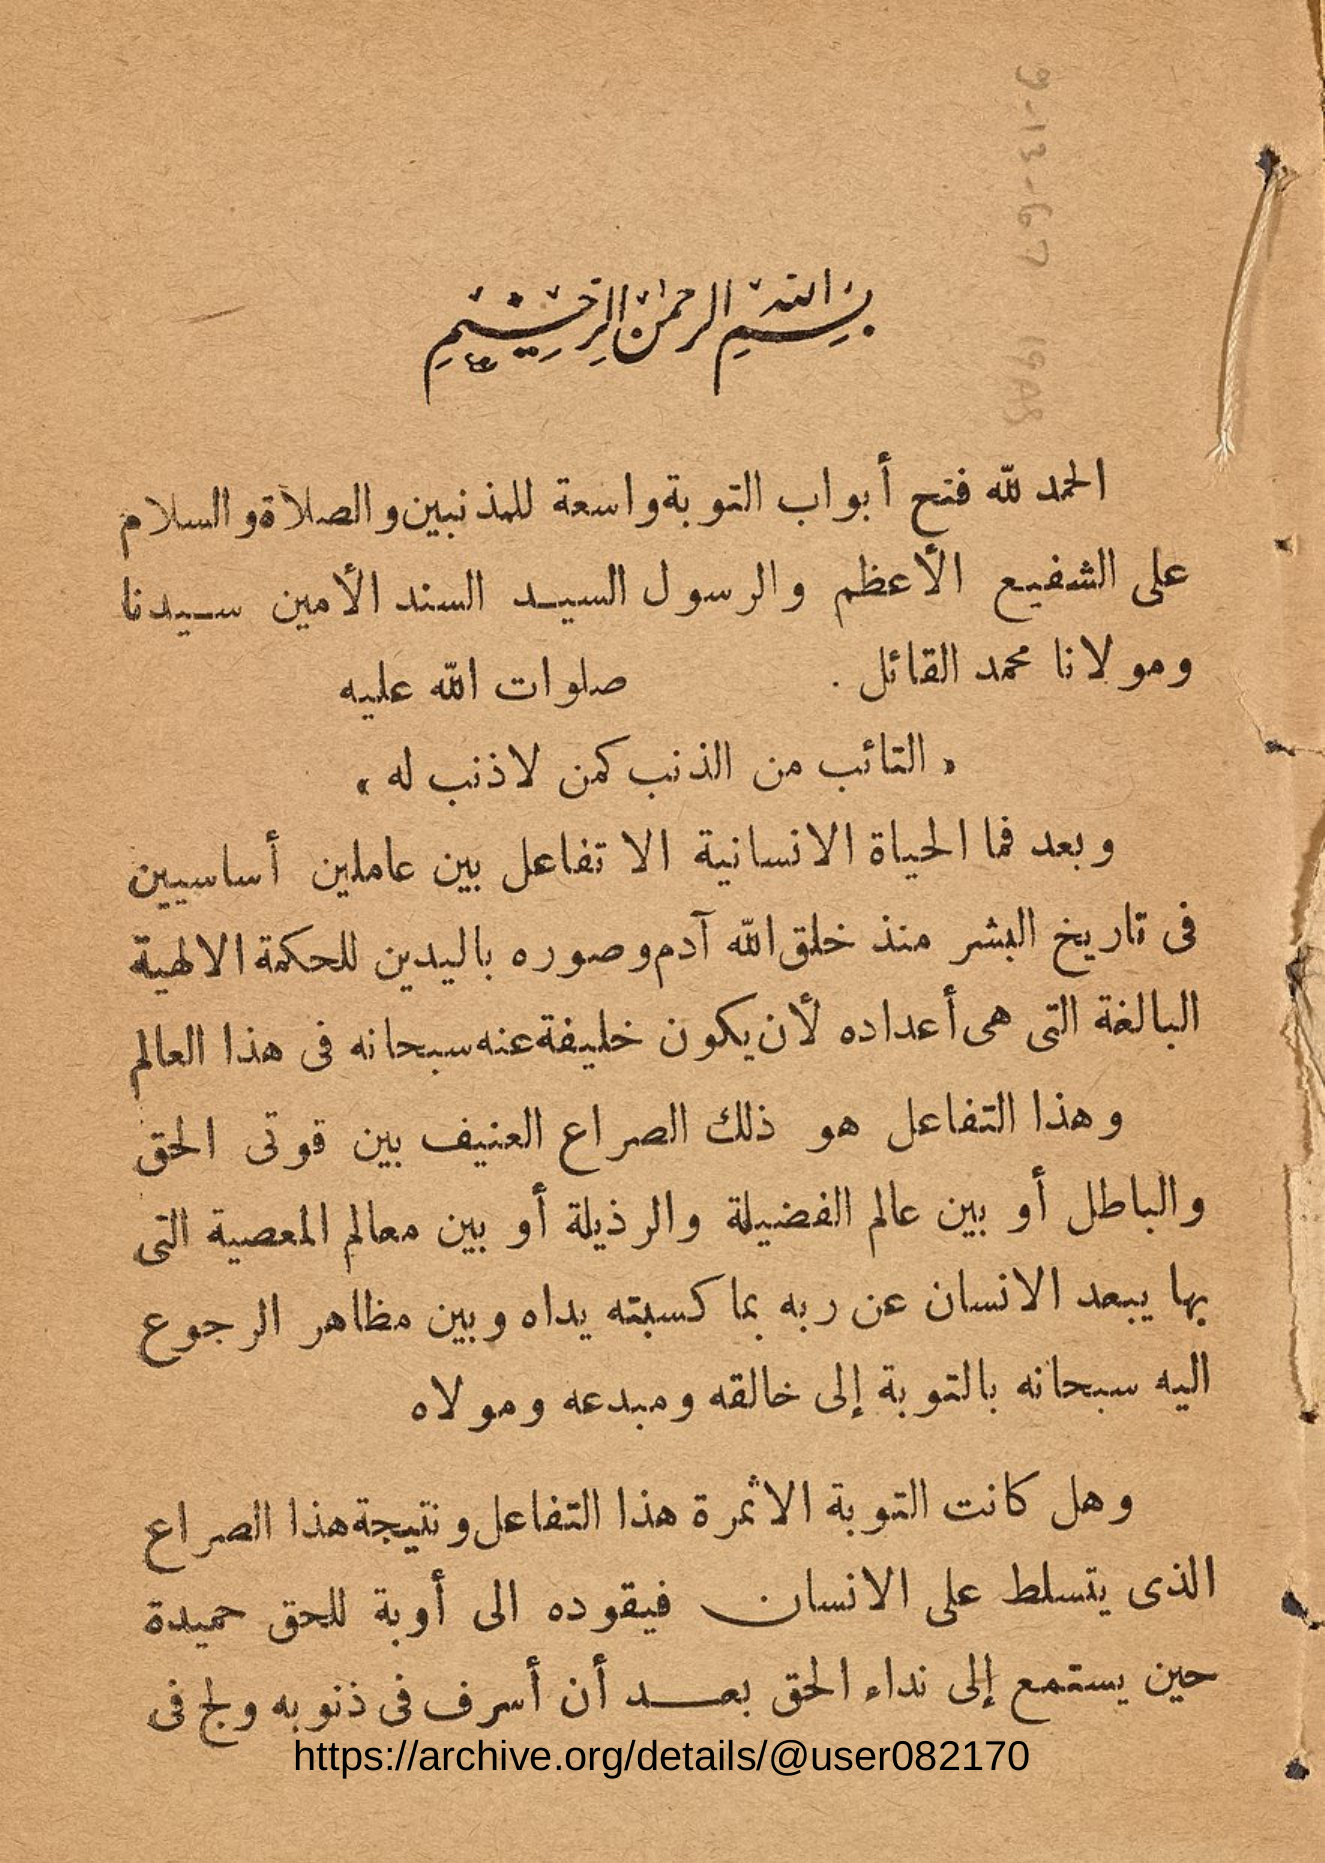 بسم الله الرحمن الرحيم
الحمد لله فتح أبواب التوبة واسعة للمذنبين والصلاة والسلام
على الشفيع الأعظم والرسول السيد السند الأمين سيدنا
ومولانا محمد القائل . صلوات الله عليه
« التائب من الذنب كمن لا ذنب له »
وبعد فما الحياة الانسانية الا تفاعل بين عاملين أساسيين
فى تاريخ البشر منذ خلق الله آدم وصوره باليدين للحكمة الالهية
البالغة التى هى أعداده لأن يكون خليفة عنه سبحانه فى هذا العالم
وهذا التفاعل هو ذلك الصراع العنيف بين قوتى الحق
والباطل أو بين عالم الفضيلة والرذيلة أو بين معالم المعصية التى
بها يبعد الانسان عن ربه بما كسبته يداه وبين مظاهر الرجوع
اليه سبحانه بالتوبة إلى خالقه ومبدعه ومولاه
وهل كانت التوبة الا ثمرة هذا التفاعل ونتيجة هذا الصراع
الذى يتسلط على الانسان فيقوده الى أوبة للحق حميدة
حين يستمع إلى نداء الحق بعد أن أسرف فى ذنوبه ولج فى
https://archive.org/details/@user082170